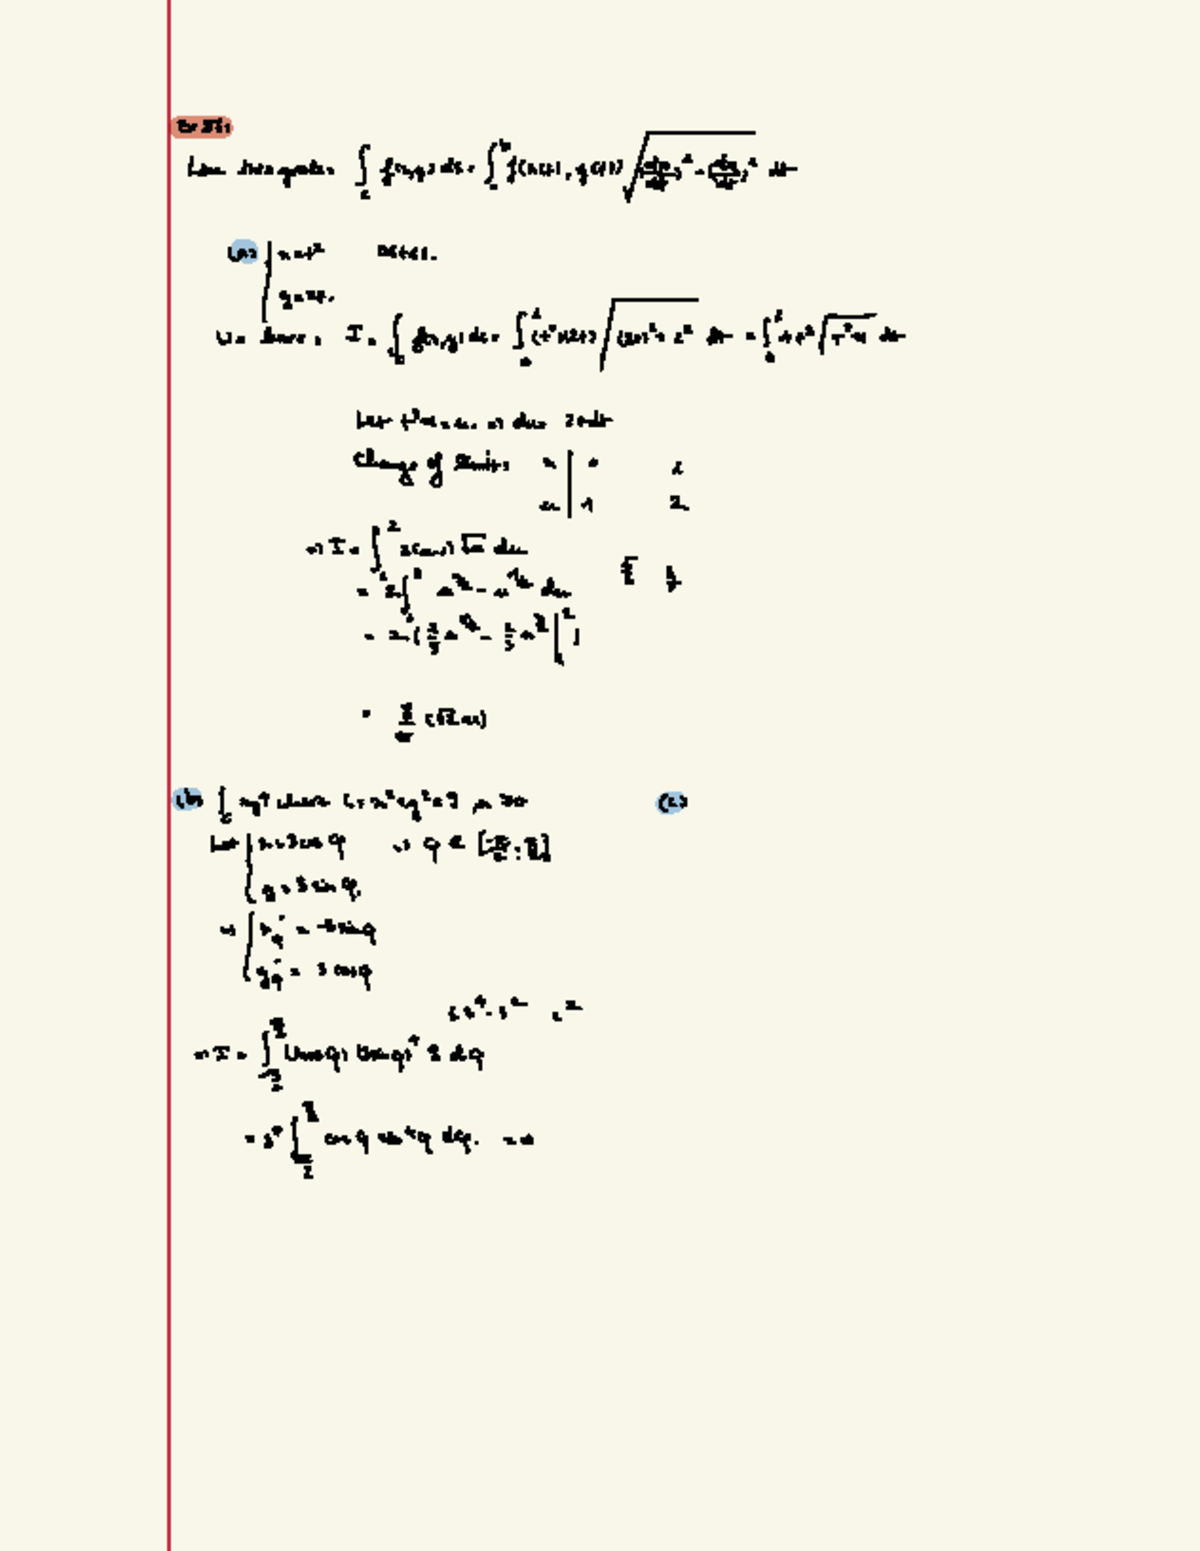 Line Integrals: ∫_C f(x,y) ds = ∫_a^b f(x(t), y(t)) √((dx/dt)² + (dy/dt)²) dt
(a) { x = t² 0≤t≤1.
y = 2t.
We have: I = ∫_C f(x,y) ds = ∫_0^1 (t²)(2t) √((2t)² + 2²) dt = ∫_0^1 4t³ √(t²+1) dt
Let t²+1 = u ⇒ du = 2t dt
Change of limits x | 0 1
u | 1 2
⇒ I = ∫_1^2 2(u-1) √u du
= 2 ∫_1^2 u^{3/2} - u^{1/2} du
= 2 ( 2/5 u^{5/2} - 2/3 u^{3/2} |_1^2 )
= 8/15 (√2+1)
(b) ∫_C xy⁴ where C: x² + y² = 9, x ≥ 0
(c)
Let { x = 3 cos φ ⇒ φ ∈ [-π/2; π/2]
y = 3 sin φ
⇒ { x'φ = -3 sin φ
y'φ = 3 cos φ
⇒ I = ∫_{-π/2}^{π/2} (3 cos φ) (3 sin φ)⁴ 3 dφ
cos φ sin⁴ φ dφ.